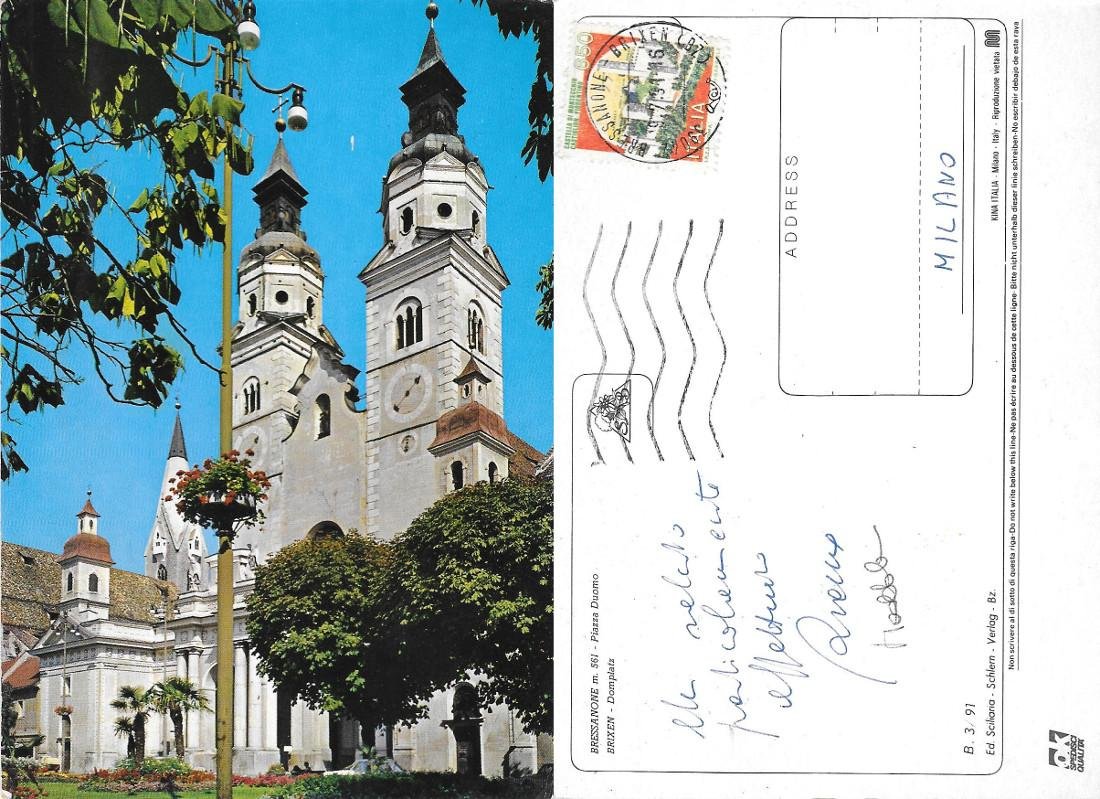 BRESSANONE m. 561 - Piazza Duomo
BRIXEN - Domplatz
Un saluto
particolarmente
affettuoso
B. 3/91
Ed. Sciliana - Schlern - Verlag - Bz.
ADDRESS
MILANO
KINA ITALIA - Milano - Italy - Riproduzione vietata
Non scrivere al di sotto di questa riga-Do not write below this line-Ne pas écrire au dessous de cette ligne-Bitte nicht unterhalb dieser linie schreiben-No escribir debajo de esta raya
SPEDISCI
QUALITÀ
650
ITALIA
BRESSANONE BRIXEN